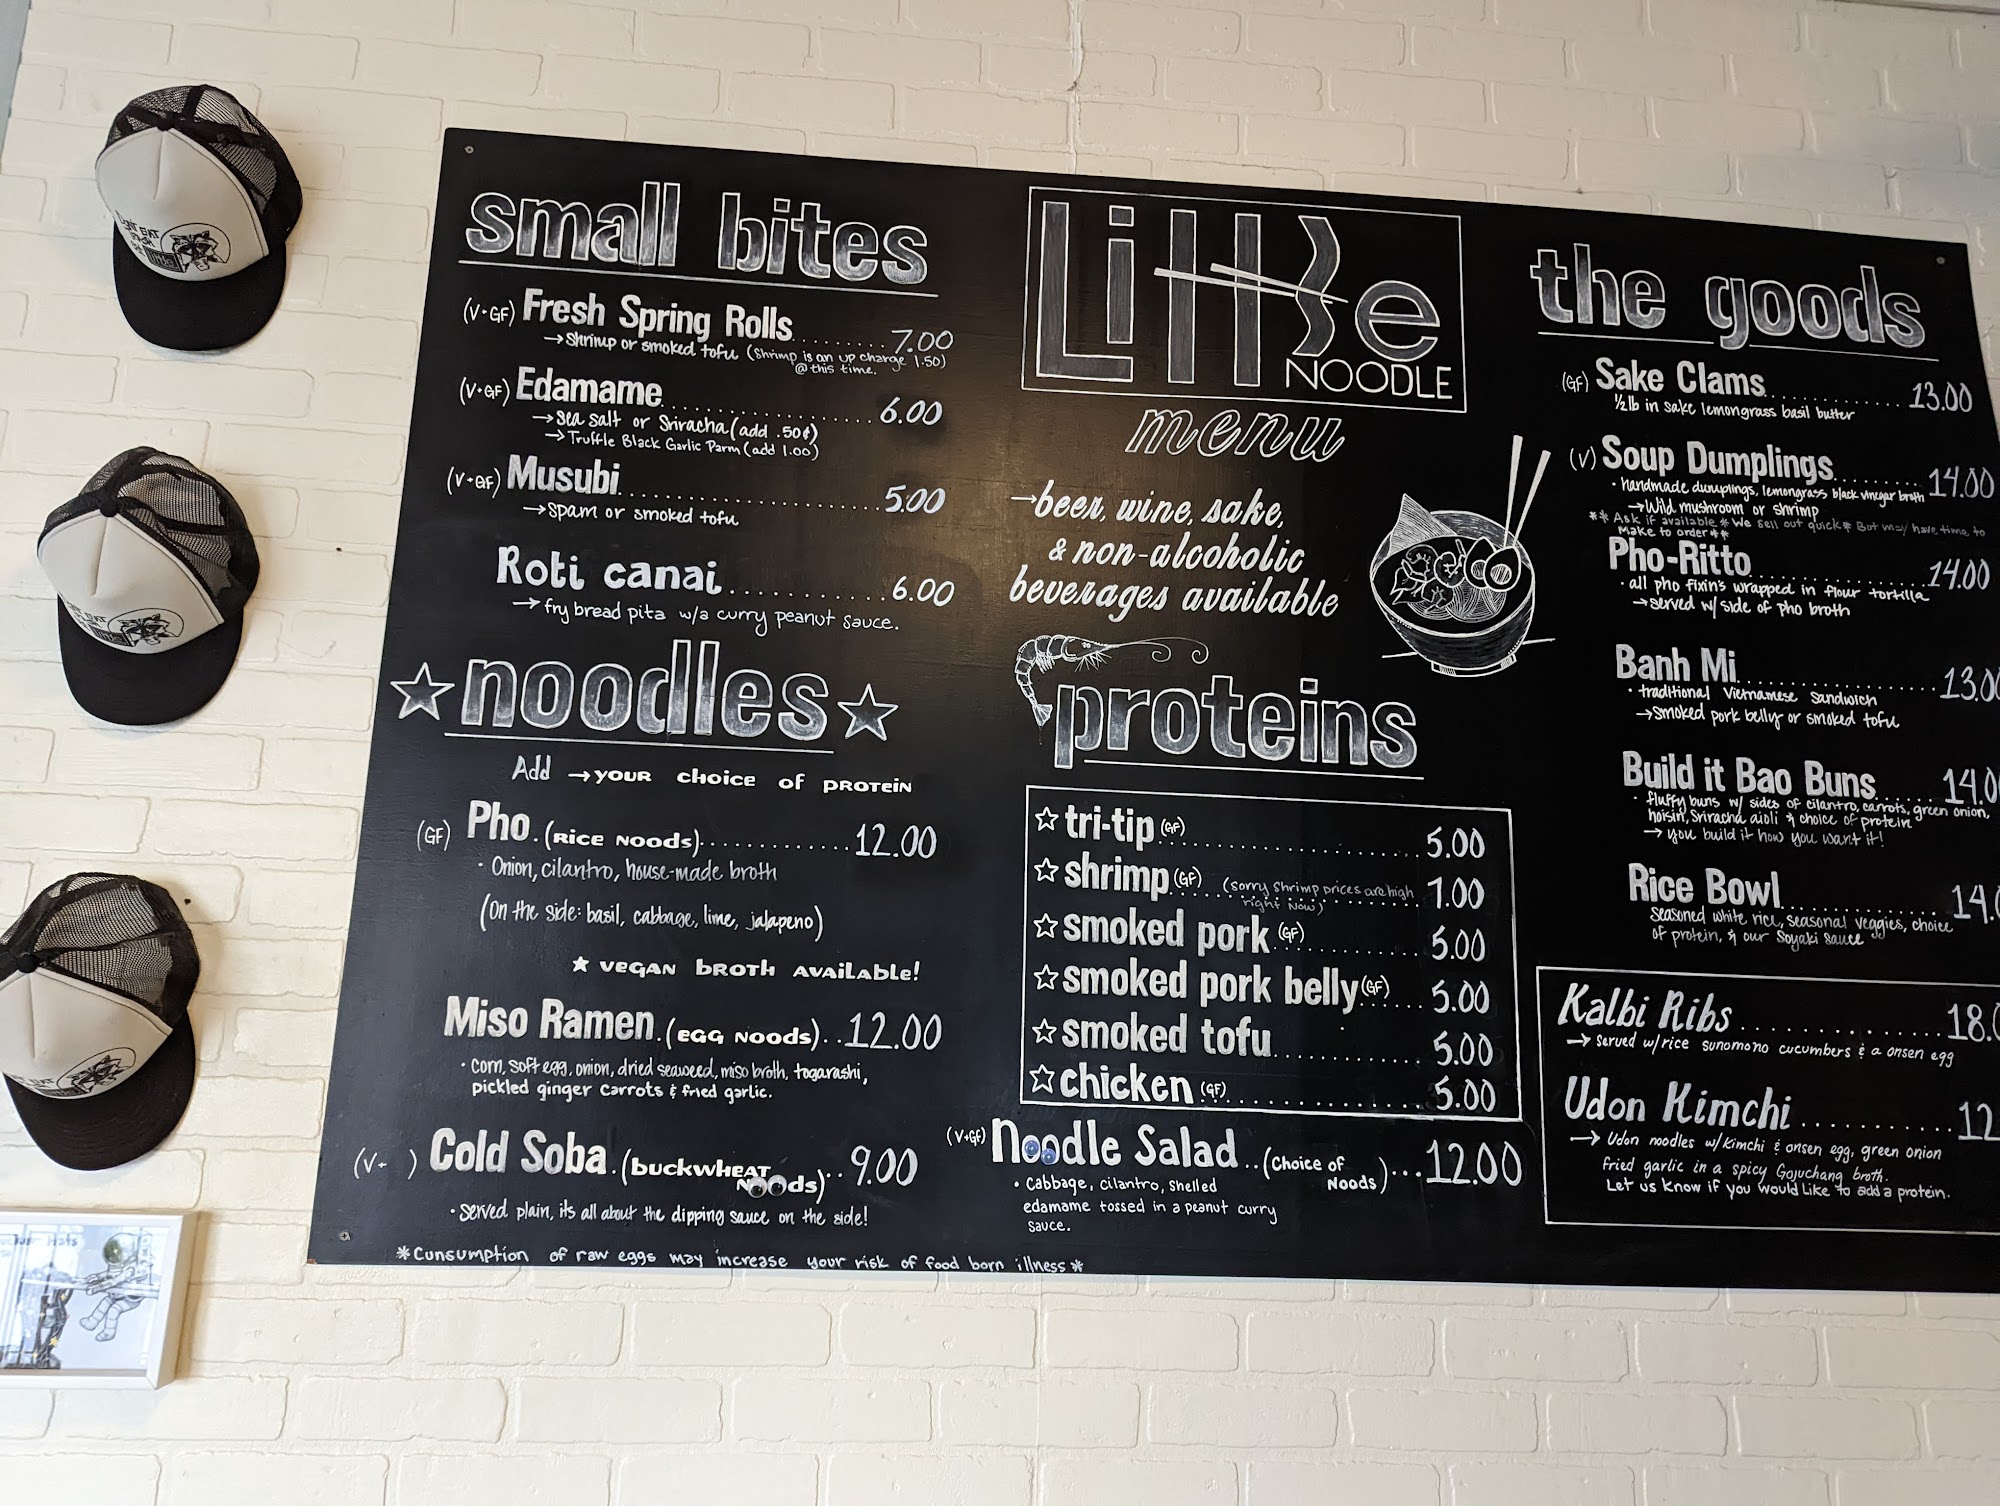 small bites
(V+GF) Fresh Spring Rolls........7.00
→shrimp or smoked tofu (Shrimp is an up charge 1.50)
@ this time.
(V+GF) Edamame..............6.00
→sea salt or Sriracha (add .50¢)
→Truffle Black Garlic Parm (add 1.00)
(V+GF) Musubi..............5.00
→spam or smoked tofu
Roti canai..........6.00
→fry bread pita w/a curry peanut sauce.
noodles
Add →your choice of protein
(GF) Pho.(Rice Noods)..........12.00
• Onion, cilantro, house-made broth
(On the side: basil, cabbage, lime, jalapeno)
★ vegan broth available!
Miso Ramen.(egg noods)..12.00
• corn, soft egg, onion, dried seaweed, miso broth, togarashi,
pickled ginger carrots & fried garlic.
(V+ ) Cold Soba.(buckwheat
Noods)..9.00
• Served plain, its all about the dipping sauce on the side!
*Cunsumption of raw eggs may increase your risk of food born illness*
Little
NOODLE
menu
→beer, wine, sake,
& non-alcoholic
beverages available
proteins
☆tri-tip (GF)..............5.00
☆shrimp (GF) (sorry shrimp prices are high
right now) 7.00
☆smoked pork (GF)..........5.00
☆smoked pork belly (GF)....5.00
☆smoked tofu..............5.00
☆chicken (GF)..............5.00
(V+GF) Noodle Salad..(Choice of
Noods)...12.00
• Cabbage, cilantro, shelled
edamame tossed in a peanut curry
sauce.
the goods
(GF) Sake Clams..........13.00
½lb in sake lemongrass basil butter
(V) Soup Dumplings........14.00
• handmade dumplings, lemongrass black vinegar broth
→Wild mushroom or shrimp
** Ask if available * We sell out quick * But may have time to
make to order**
Pho-Ritto..............14.00
• all pho fixin's wrapped in flour tortilla
→served w/ side of pho broth
Banh Mi..............13.00
• traditional Vietnamese sandwich
→smoked pork belly or smoked tofu
Build it Bao Buns......14.0
• fluffy buns w/ sides of cilantro, carrots, green onion,
hoisin, Sriracha aioli & choice of protein
→ you build it how you want it!
Rice Bowl..............14.
seasoned white rice, seasonal veggies, choice
of protein, & our Soyaki sauce
Kalbi Ribs..............18.0
→ served w/rice sunomono cucumbers & a onsen egg
Udon Kimchi............12
→ Udon noodles w/kimchi & onsen egg, green onion
fried garlic in a spicy Gojuchang broth.
Let us know if you would like to add a protein.